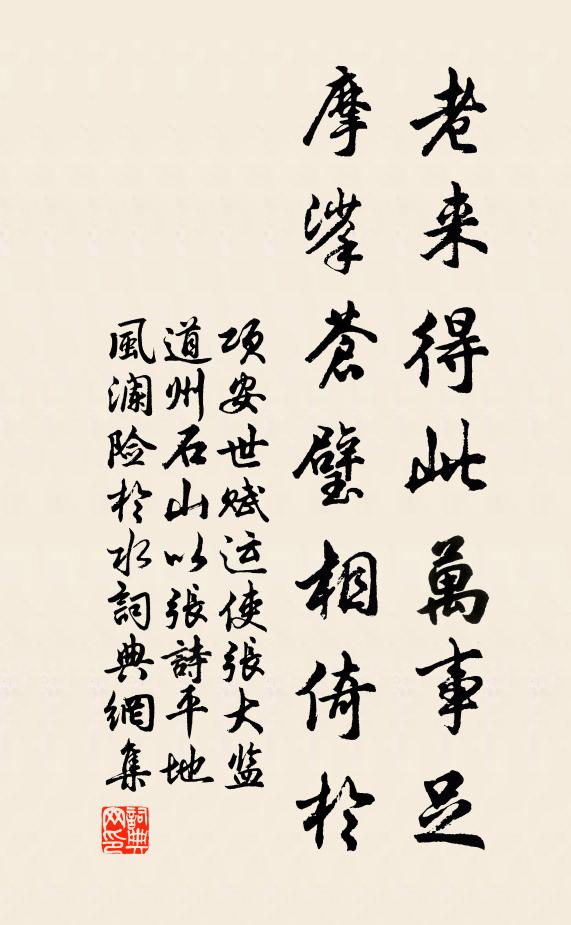 老来得此萬事足
摩挲蒼璧相倚於
项安世赋运使張大监
道州石山以張詩平地
風澜险於水詞典網集
詞典网印